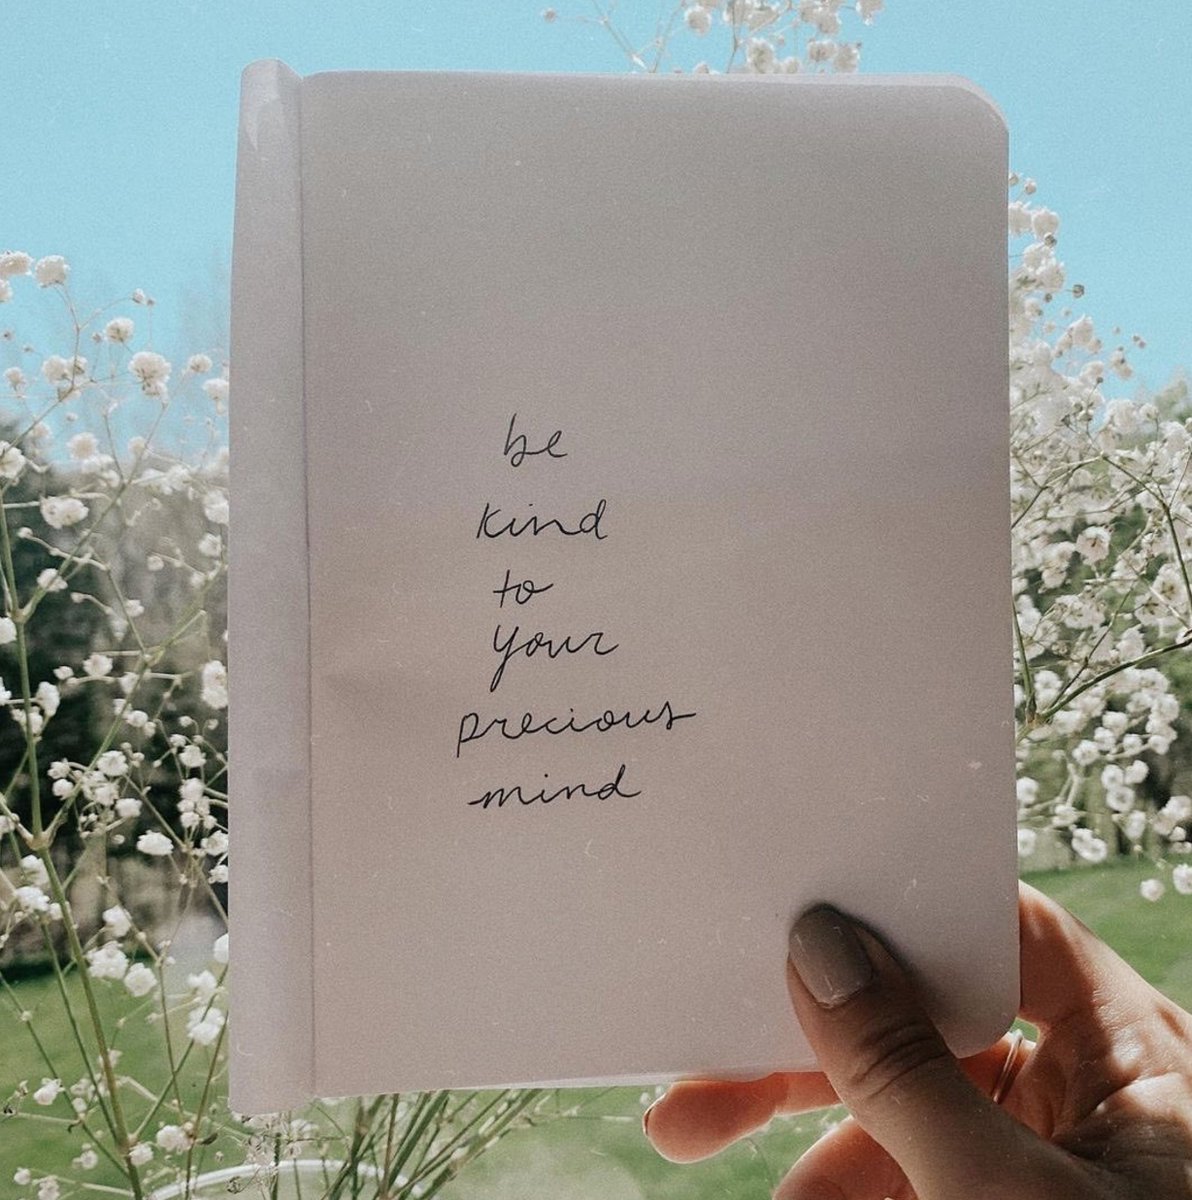 be
kind
to
your
precious
mind